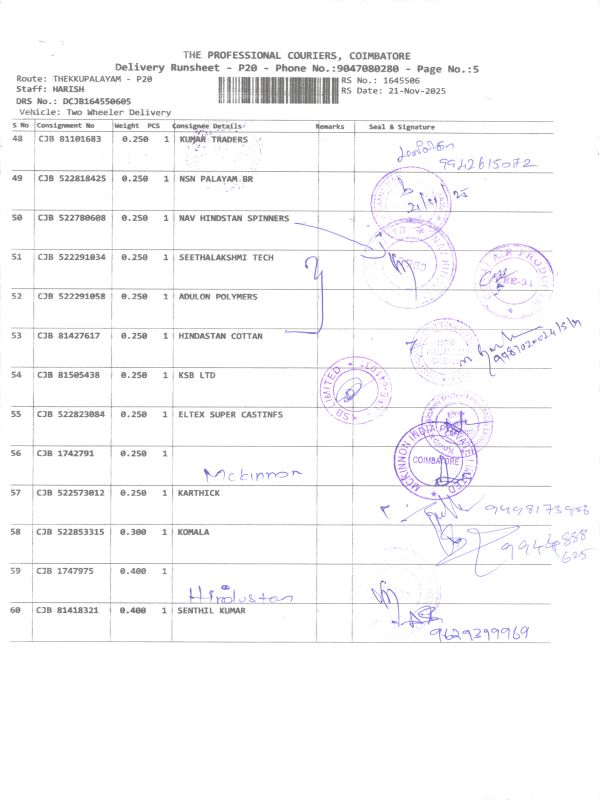 THE PROFESSIONAL COURIERS, COIMBATORE
Delivery Runsheet - P20 - Phone No.:9047080280 - Page No.:5
Route: THEKKUPALAYAM - P20
RS No.: 1645506
Staff: HARISH
RS Date: 21-Nov-2025
DRS No.: DCJB164550605
Vehicle: Two Wheeler Delivery
S No Consignment No Weight PCS Consignee Details Remarks Seal & Signature
48 CJB 81101683 0.250 1 KUMAR TRADERS
9942615072
49 CJB 522818425 0.250 1 NSN PALAYAM BR
21/11/25
50 CJB 522780608 0.250 1 NAV HINDSTAN SPINNERS
51 CJB 522291034 0.250 1 SEETHALAKSHMI TECH
BE-31
52 CJB 522291058 0.250 1 ADULON POLYMERS
53 CJB 81427617 0.250 1 HINDASTAN COTTAN
54 CJB 81505438 0.250 1 KSB LTD
KSB LIMITED
55 CJB 522823084 0.250 1 ELTEX SUPER CASTINFS
56 CJB 1742791 0.250 1
Mckinnon
MCKINNON INDIA PRIVATE LIMITED
COIMBATORE
57 CJB 522573012 0.250 1 KARTHICK
9498173956
58 CJB 522853315 0.300 1 KOMALA
99440888
625
59 CJB 1747975 0.400 1
Hindustan
60 CJB 81418321 0.400 1 SENTHIL KUMAR
9629399969